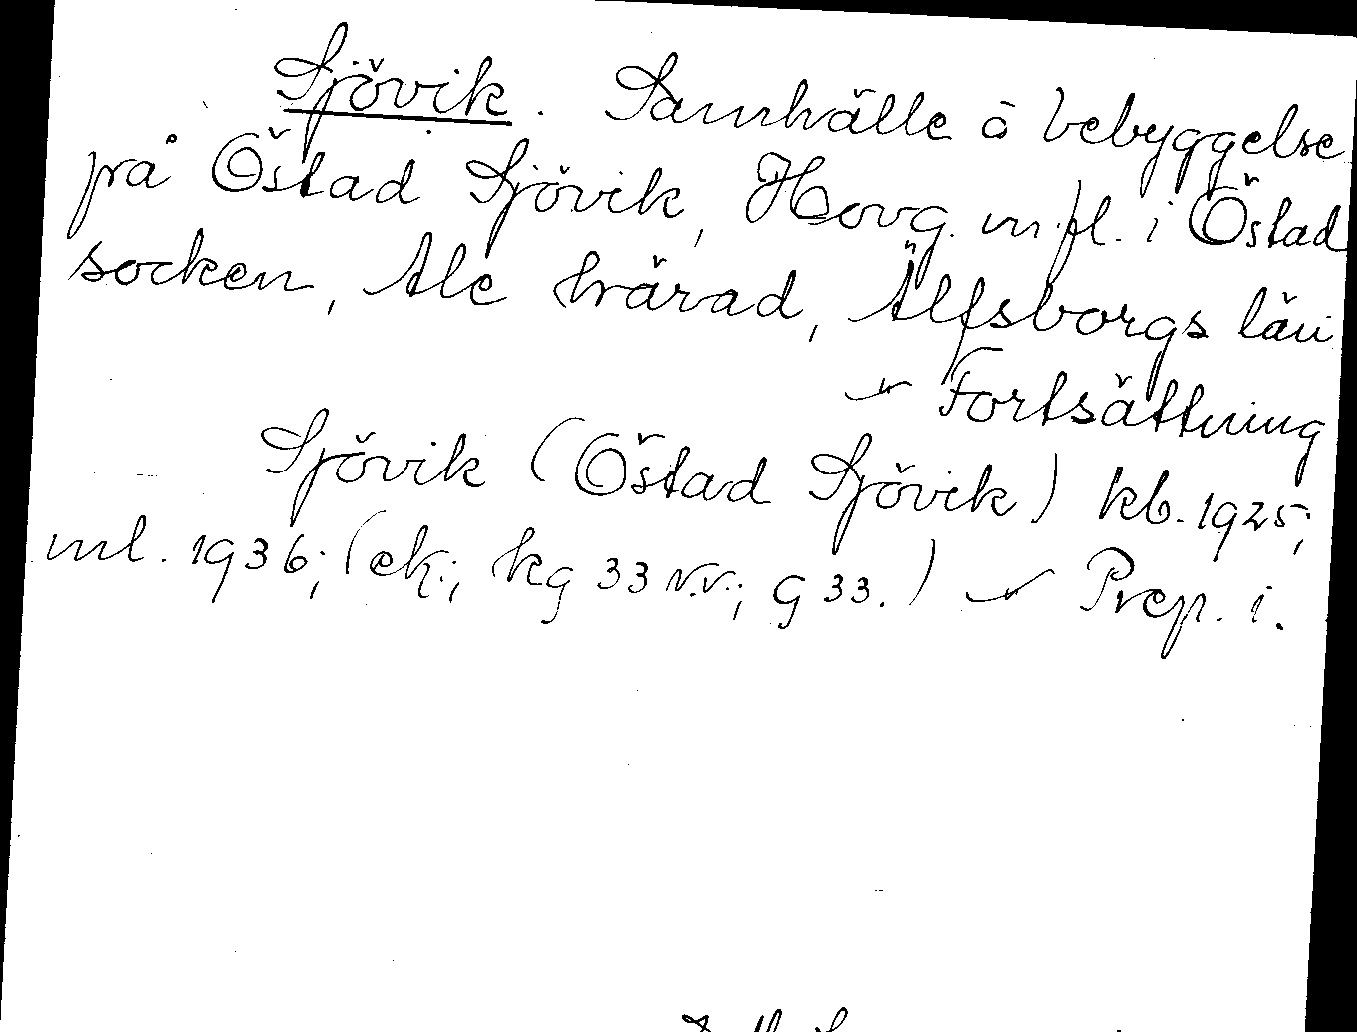 Sjövik. Samhälle å bebyggelse
på Östad Sjövik, Hovg. m.fl. i Östad
socken, Ale härad, Älfsborgs län
Fortsättning
Sjövik (Östad Sjövik) kb. 1925;
ml. 1936; (ek.; kg 33 N.V.; g 33.) Prep. i.